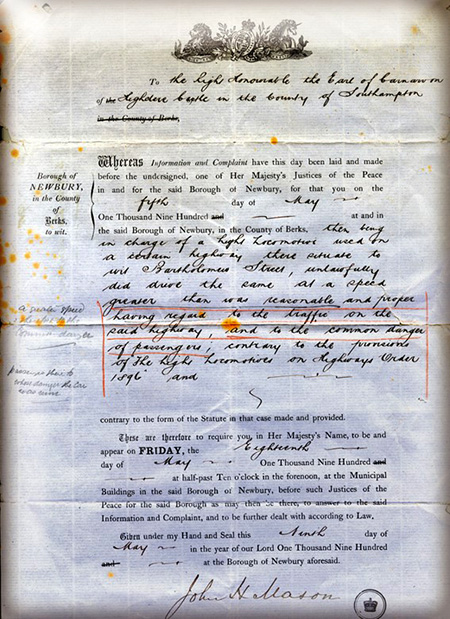 To the Right Honourable the Earl of Carnarvon
of the Highclere Castle in the County of Southampton
in the County of Berks,
Borough of
NEWBURY,
in the County
of
Berks,
to wit.
Whereas Information and Complaint have this day been laid and made
before the undersigned, one of Her Majesty's Justices of the Peace
in and for the said Borough of Newbury, for that you on the
fifth day of May
One Thousand Nine Hundred and at and in
the said Borough of Newbury, in the County of Berks, then being
in charge of a Light Locomotive used on
a certain highway there situate to
wit Bartholomew Street, unlawfully
did drive the same at a speed
greater than was reasonable and proper
having regard to the traffic on the
said highway, and to the common danger
of passengers, contrary to the provisions
of The Light Locomotives on Highways Order
1896 and
a greater speed
danger
contrary to the form of the Statute in that case made and provided.
These are therefore to require you, in Her Majesty's Name, to be and
appear on FRIDAY, the Eighteenth
day of May One Thousand Nine Hundred and
at half-past Ten o'clock in the forenoon, at the Municipal
Buildings in the said Borough of Newbury, before such Justices of the
Peace for the said Borough as may then be there, to answer to the said
Information and Complaint, and to be further dealt with according to Law.
Given under my Hand and Seal this Ninth day of
May in the year of our Lord One Thousand Nine Hundred
and at the Borough of Newbury aforesaid.
John H Mason